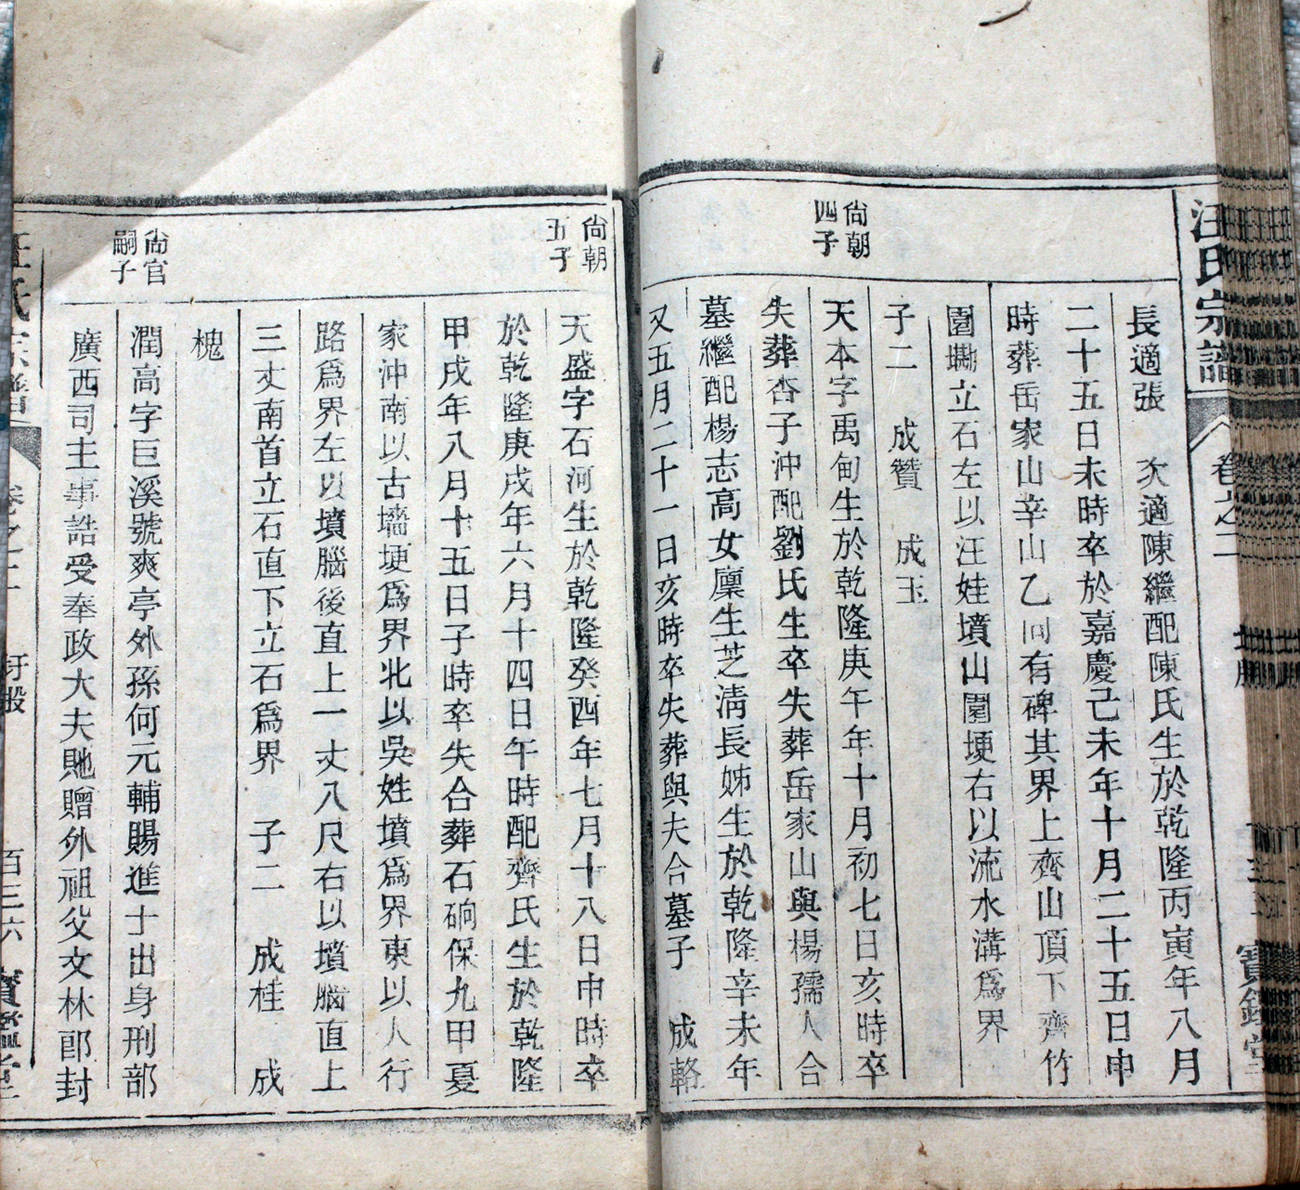 汪氏宗譜 卷之二
長適張 次適陳繼配陳氏生於乾隆丙寅年八月
二十五日未時卒於嘉慶己未年十月二十五日申
時葬岳家山辛山乙向有碑其界上齊山頂下齊竹
園塹立石左以汪姓墳山園埂右以流水溝爲界
子二 成贊 成玉
尙朝
四子
天本字禹甸生於乾隆庚午年十月初七日亥時卒
失葬杏子沖配劉氏生卒失葬岳家山與楊孺人合
墓繼配楊志高女廩生芝淸長姊生於乾隆辛未年
又五月二十一日亥時卒失葬與夫合墓子 成輅
尙朝
五子
天盛字石河生於乾隆癸酉年七月十八日申時卒
於乾隆庚戌年六月十四日午時配齊氏生於乾隆
甲戌年八月十五日子時卒失合葬石磗保九甲夏
家沖南以古墻埂爲界北以吳姓墳爲界東以人行
路爲界左以墳腦後直上一丈八尺右以墳腦直上
三丈南首立石直下立石爲界 子二 成桂 成
槐
尙官
嗣子
潤高字巨溪號爽亭外孫何元輔賜進士出身刑部
廣西司主事誥受奉政大夫貤贈外祖父文林郎封
汪氏宗譜 卷之二 百三六 寶鑑堂